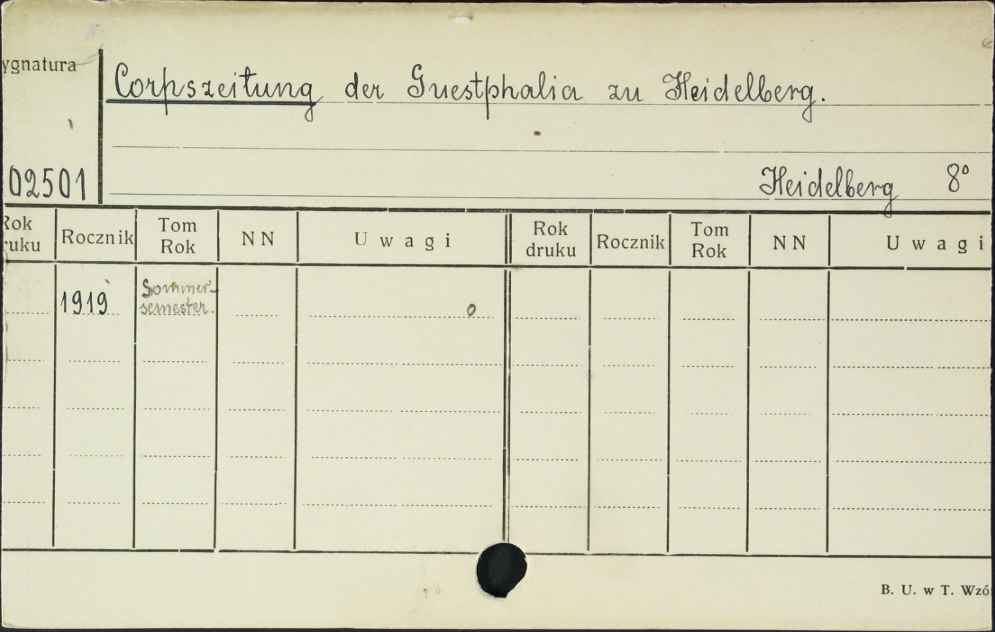 ygnatura
Corpszeitung der Guestphalia zu Heidelberg.
02501
Heidelberg 8°
Rok druku Rocznik Tom Rok NN Uwagi Rok druku Rocznik Tom Rok NN Uwagi
1919 Sommer-
semester.
B. U. w T. Wzó